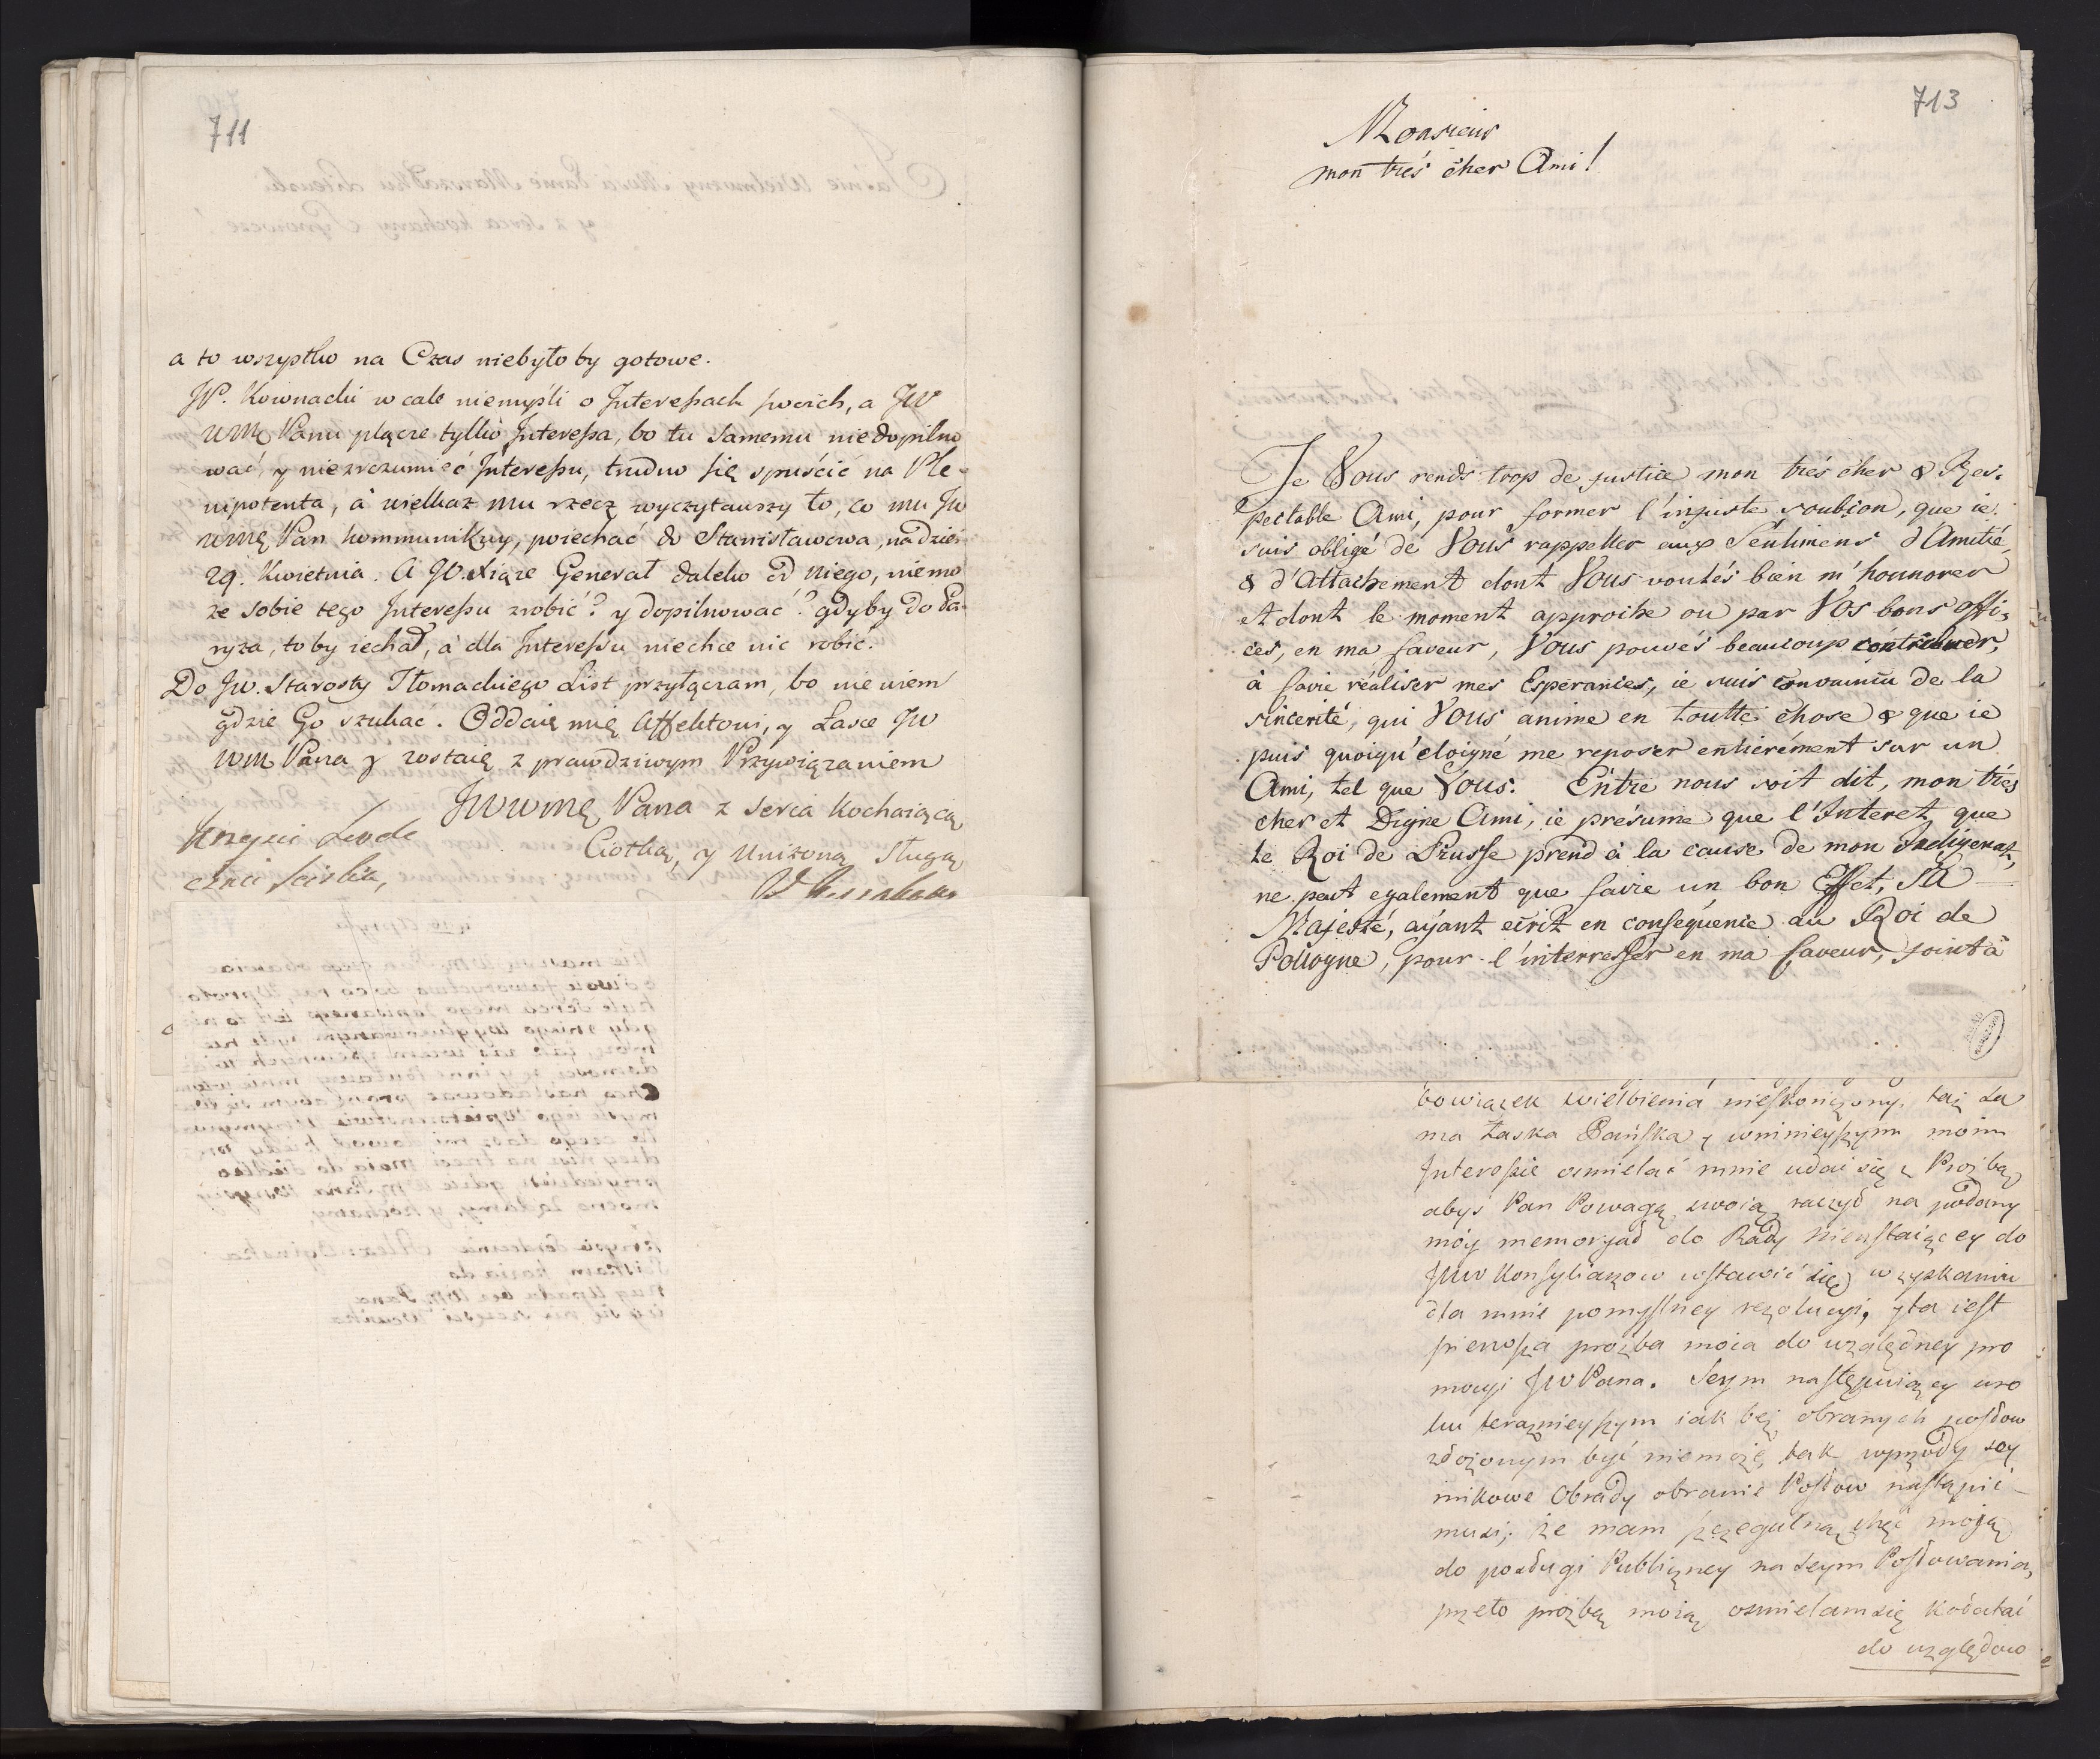 711
a to wszystko na Czas niebyłoby gotowe.
JP. Kownacki wcale niemyśli o Interessach swoich, a JW
WMę Panu plącze tylko Interessa, bo tu samemu niedopilno
wać, y niezrozumieć Interessu, trudno się spuścić na Ple-
nipotenta, à wielkaz mu rzecz wyczytawszy to, co mu JW
WMę Pan kommunikuy, poiechać do Stanisławowa, na dzień
29. Kwietnia. A JO. Xiąże Generał daleko od niego, niemo
że sobie tego Interessu zrobić? y dopilnować? gdyby do Pa-
ryża, to by iechał, à dla Interessu niechce nic robić.
Do JW. Starosty Tłomackiego List przyłączam, bo nie wiem
gdzie Go szukać. Oddaię mię Affektowi, y Łasce JW
WMę Pana y zostaię z prawdziwym Przywiązaniem
JWWMę Pana z serca Kochaiącą
Ciotką, y Uniżoną Sługą
713
Monsieur
mon trés cher Ami!
Je Vous rends trop de justice mon trés cher & Res-
pectable Ami, pour former l'injuste soubçon, que ie
suis obligé de Vous rappeller aux Sentimens d'Amitié,
& d'Attachement dont Vous voulés bien m'honnorer
et dont le moment approche ou par Vos bons offi-
ces, en ma faveur, Vous pouvés beaucoup contribuer,
à faire réaliser mes Esperances, ie suis convaincu de la
sincerité, qui Vous anime en toutte chose & que ie
puis quoiqu'eloigné me reposer entiérément sur un
Ami, tel que Vous. Entre nous soit dit, mon trés
cher et Digne Ami, ie présume que l'Interet, que
le Roi de Prusse prend à la cause de mon Indigenat,
ne peut egalement que faire un bon Effet, SA
Majesté, aÿant ecrit en conséquence au Roi de
Pologne, pour l'interresser en ma faveur, joint à
bowiązek wielbienia nieskończony, taż sa
ma Łaska Pańska y wninieyszym moim
Interessie osmielać mnie udai się z Proźbą
abyś Pan Powagą swoią raczył na podany
móy memoryał do Rady Nieustaiącey do
JWW Konsyliarzow wstawić się w zyskaniu
dla mnie pomyslney rezolucyi, y ta iest
pierwsza proźba moia do względney pro
mocyi JWPana. Seym następuiący wro
ku teraznieyszym iak bez obranych posłow
złożonym być niemoże, tak wprzódy sey
mikowe Obrady obranie Posłow nastąpić
musi; że mam szczegulną chęć moją
do posługi Publiczney na seym Posłowania,
przeto proźbą moią osmielam się kołatać
do względow